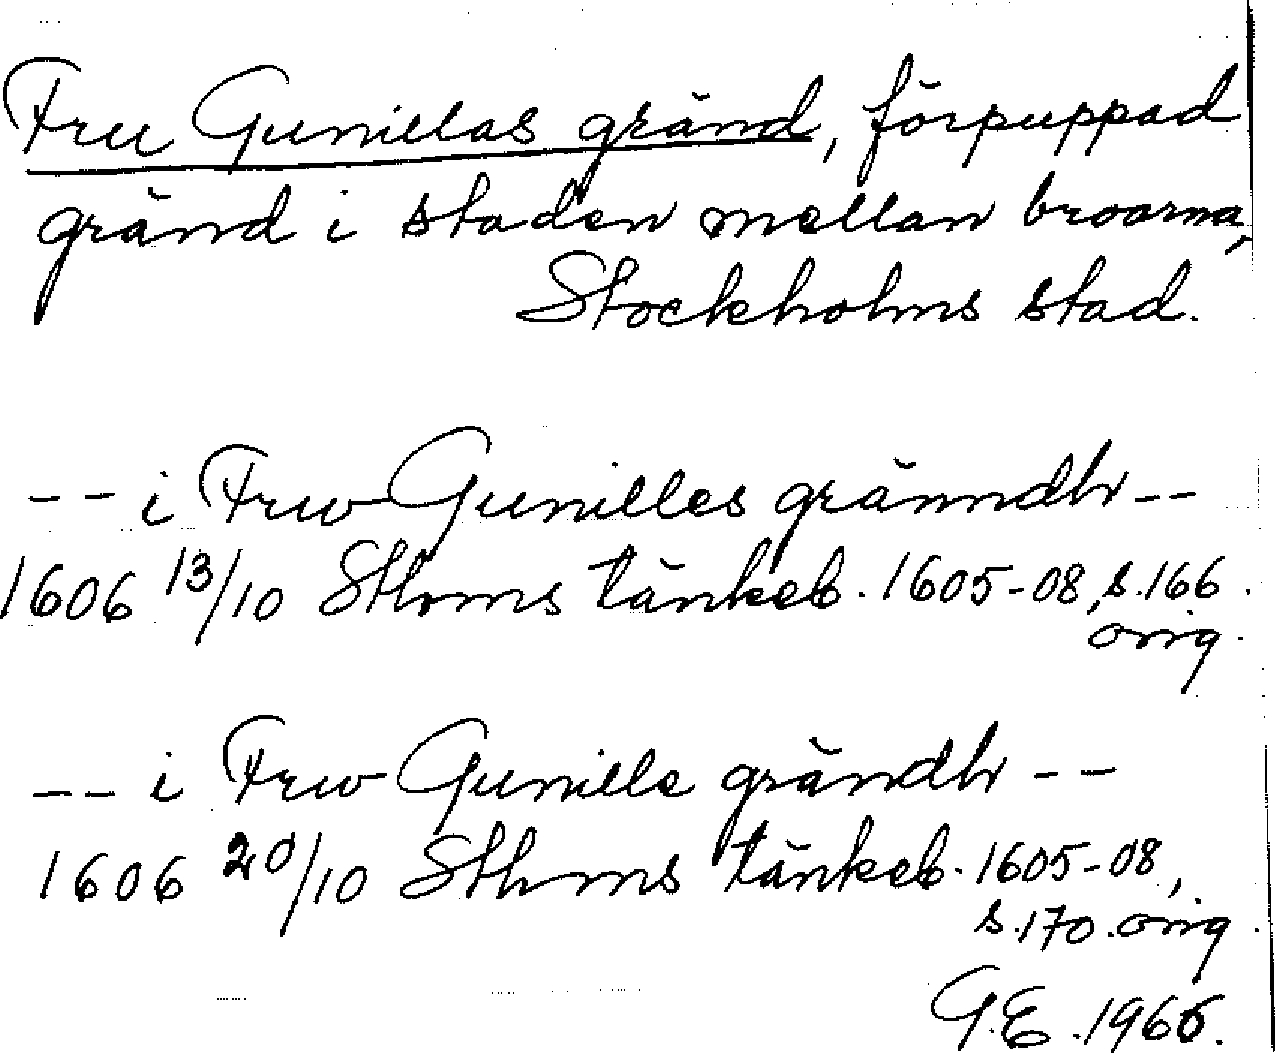 Fru Gunillas gränd, förpuppad
gränd i staden mellan broarna,
Stockholms stad.
-- i Frw Gunilles gränndh --
1606 13/10 Sthms tänkeb. 1605-08, s.166.
orig.
-- i Frw Gunille grändh --
1606 20/10 Sthms tänkeb. 1605-08,
s.170. orig.
G.E. 1966.